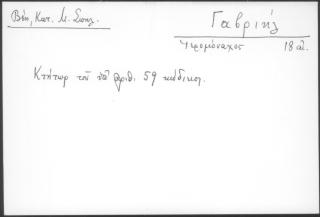 Βέη, Κατ. Μ. Σωτηλ.
Γαβριήλ
Ἱερομόναχος 18 αἰ.
Κτήτωρ τοῦ ὑπ' ἀριθ. 59 κώδικος.